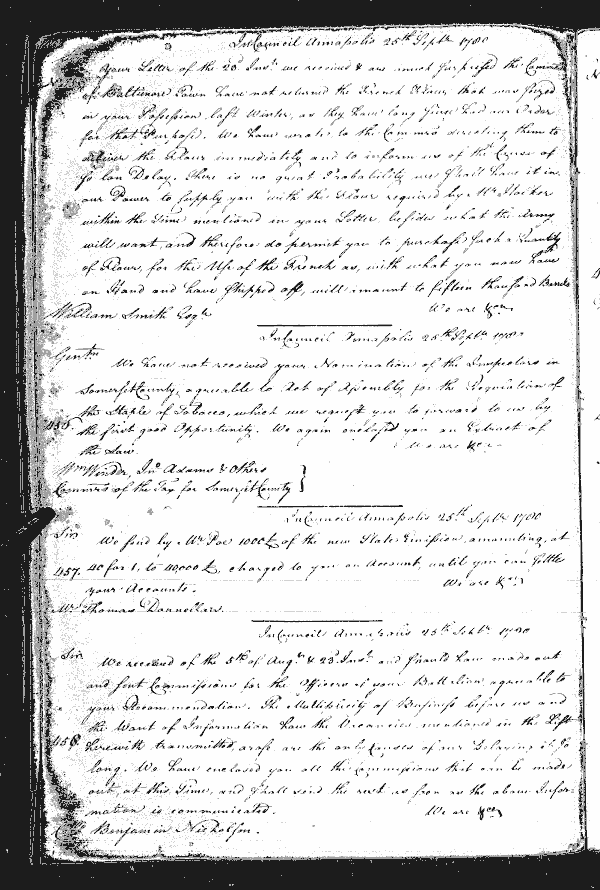 In Council Annapolis 25th Septr 1780
Your Letter of the 23d Inst we received & are much surprised the Commrs
of Baltimore Town have not returned the French Flour that was seized
in your Possession last Winter, as they have long since had our Order
for that Purpose. We have wrote to the Commrs directing them to
deliver the Flour immediately and to inform us of the Cause of
so lon Delay. There is no great Probability we shall have it in
our Power to supply you with the Flour required by Mr Holker
within the Time mentioned in your Letter, besides what the Army
will want, and therefore do permit you to purchase such a Quantity
of Flour, for the Use of the French as, with what you now have
on Hand and have shipped off, will amount to fifteen thousand Barrels
We are &ca
William Smith Esqr
In Council Annapolis 25th Septr 1780
Gentn
We have not received your Nomination of the Inspectors in
Somerset County, agreeable to Act of Assembly for the Regulation of
the Staple of Tobacco, which we request you to forward to us by
456. the first good Opportunity. We again enclosed you an Extract of
the Law.
We are &ca
Wm Winder, Jno Adams & Others
Commrs of the Tax for Somerset County
In Council Annapolis 25th Septr 1780
Sir
We send by Mr Poe 1000£ of the new State Emission, amounting, at
457. 40 for 1, to 40,000£, charged to you on Account, until you can settle
your Accounts.
We are &ca
Mr Thomas Donnellan
In Council Annapolis 25th Septr 1780
Sir
We received of the 5th of Augt & 23d Inst and should have made out
and sent Commissions for the Officers of your Battalion agreeable to
your Recommendation. The Multiplicity of Business before us and
the Want of Information how the Vacancies mentioned in the List
458. herewith transmitted, arose are the only Causes of our Delaying it so
long. We have enclosed you all the Commissions that can be made
out, at this Time, and shall send the rest as soon as the above Infor-
mation is communicated.
We are &ca
Benjamin Nicholson.